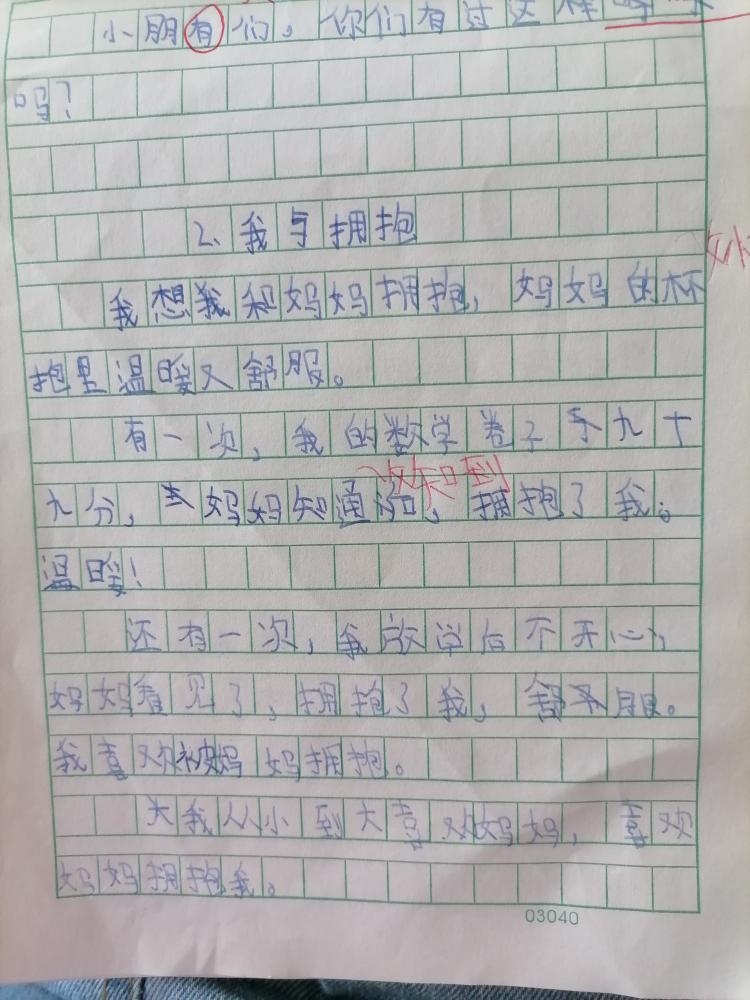 小朋有们，你们有过这样
吗？
2、我与拥抱
我想我和妈妈拥抱，妈妈的杯
抱里温暖又舒服。
有一次，我的数学卷子考九十
收到
九分，妈妈知通后，拥抱了我。
温暖！
还有一次，我放学后不开心，
妈妈看见了，拥抱了我，舒服。
我喜欢被妈妈拥抱。
我从小到大喜欢妈妈，喜欢
妈妈拥抱我。
03040